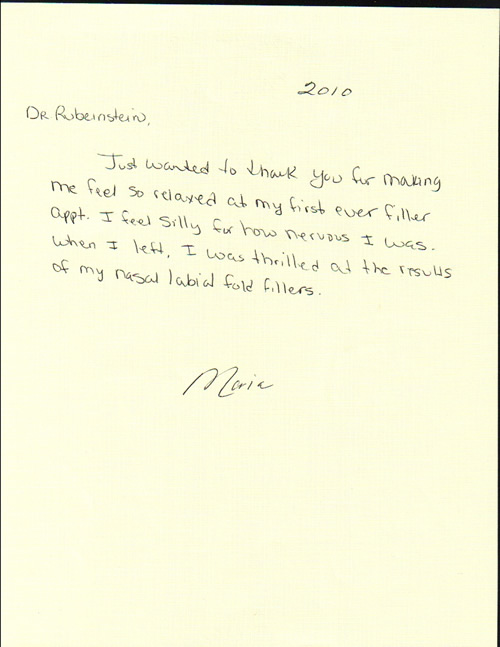 2010
Dr Rubeinstein,
Just wanted to thank you for making
me feel so relaxed at my first ever filler
appt. I feel silly for how nervous I was.
When I left, I was thrilled at the results
of my nasal labial fold fillers.
Maria